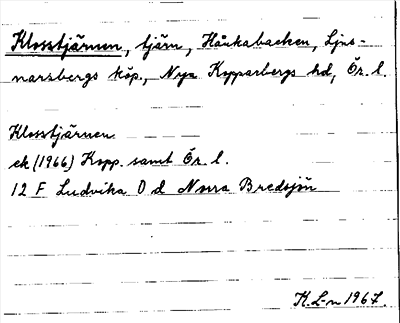 Klosstjärnen, tjärn, Håukabacken, Ljus-
narsbergs köp., Nya Kopparbergs hd, Ör. l.
Klosstjärnen
ek (1966) Kopp. samt Ör. l.
12 F Ludvika 0 d Norra Bredsjön
K. L-n 1967.